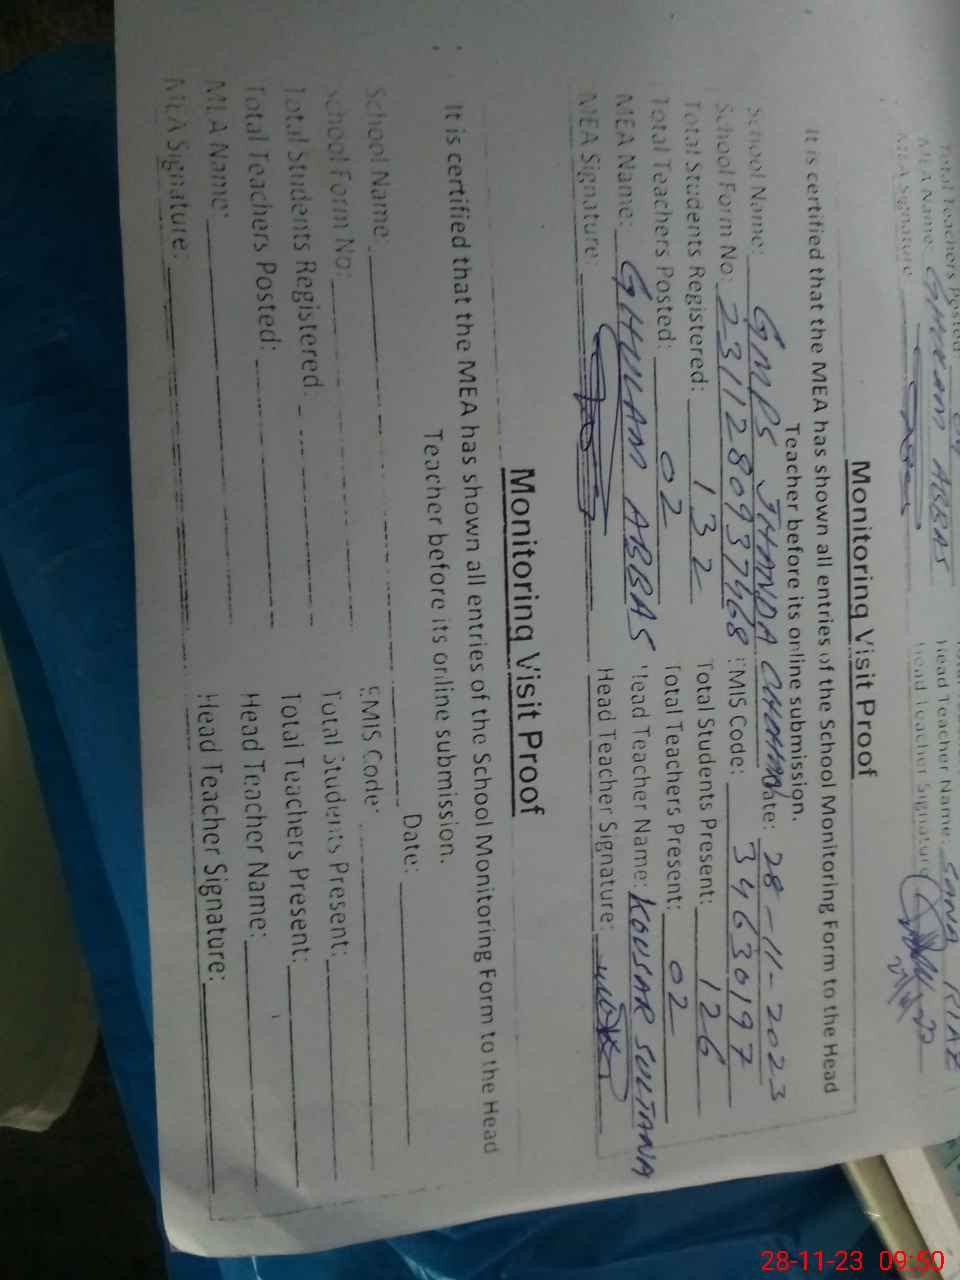 Total Teachers Posted:
MEA Name: GHULAM ABBAS Head Teacher Name: SANA RIAZ
MEA Signature: Head Teacher Signature:
Monitoring Visit Proof
It is certified that the MEA has shown all entries of the School Monitoring Form to the Head
Teacher before its online submission.
School Name: GMPS JHANDA Date: 28-11-2023
School Form No: 2311280937468 EMIS Code: 34630197
Total Students Registered: 132 Total Students Present: 126
Total Teachers Posted: 02 Total Teachers Present: 02
MEA Name: GHULAM ABBAS Head Teacher Name: KOUSAR SULTANA
MEA Signature: Head Teacher Signature:
Monitoring Visit Proof
It is certified that the MEA has shown all entries of the School Monitoring Form to the Head
Teacher before its online submission.
School Name: Date:
School Form No: EMIS Code:
Total Students Registered: Total Students Present:
Total Teachers Posted: Total Teachers Present:
MEA Name: Head Teacher Name:
MEA Signature: Head Teacher Signature:
28-11-23 09:50